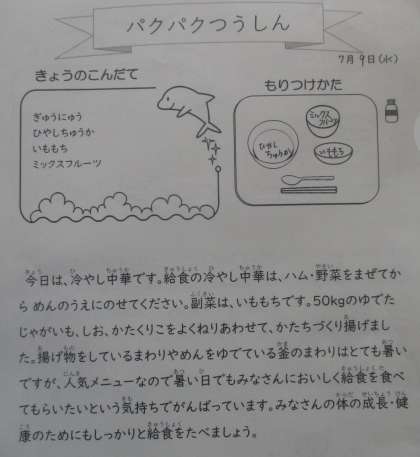 パクパクつうしん
7月9日(水)
きょうのこんだて
ぎゅうにゅう
ひやしちゅうか
いももち
ミックスフルーツ
もりつけかた
ミックス
フルーツ
ひやし
ちゅうか
いももち
今日は、冷やし中華です。給食の冷やし中華は、ハム・野菜をまぜてか
ら めんのうえにのせてください。副菜は、いももちです。50kgのゆでた
じゃがいも、しお、かたくりこをよくねりあわせて、かたちづくり揚げまし
た。揚げ物をしているまわりやめんをゆでている釜のまわりはとても暑い
ですが、人気メニューなので暑い日でもみなさんにおいしく給食を食べ
てもらいたいという気持ちでがんばっています。みなさんの体の成長・健
康のためにもしっかりと給食をたべましょう。